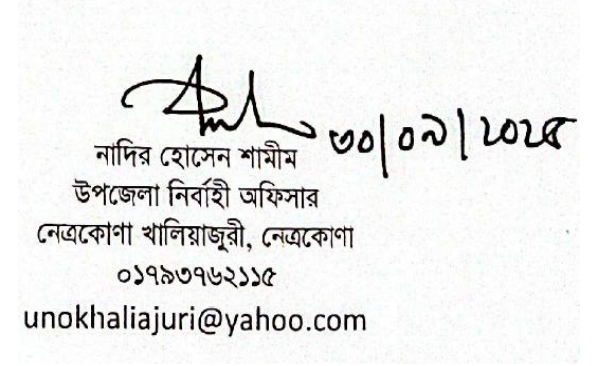 ৩০/০৯/২০২৫
নাদির হোসেন শামীম
উপজেলা নির্বাহী অফিসার
নেত্রকোণা খালিয়াজুরী, নেত্রকোণা
০১৭৯৩৭৬২১১৫
unokhaliajuri@yahoo.com